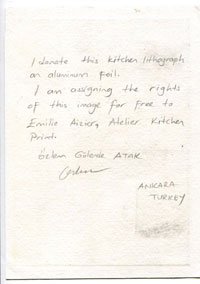 I donate this kitchen lithograph
on aluminum foil.
I am assigning the rights
of this image for free to
Émilie Aizier, Atelier Kitchen
Print.
Özlem Gülenür ATAK
ANKARA
TURKEY